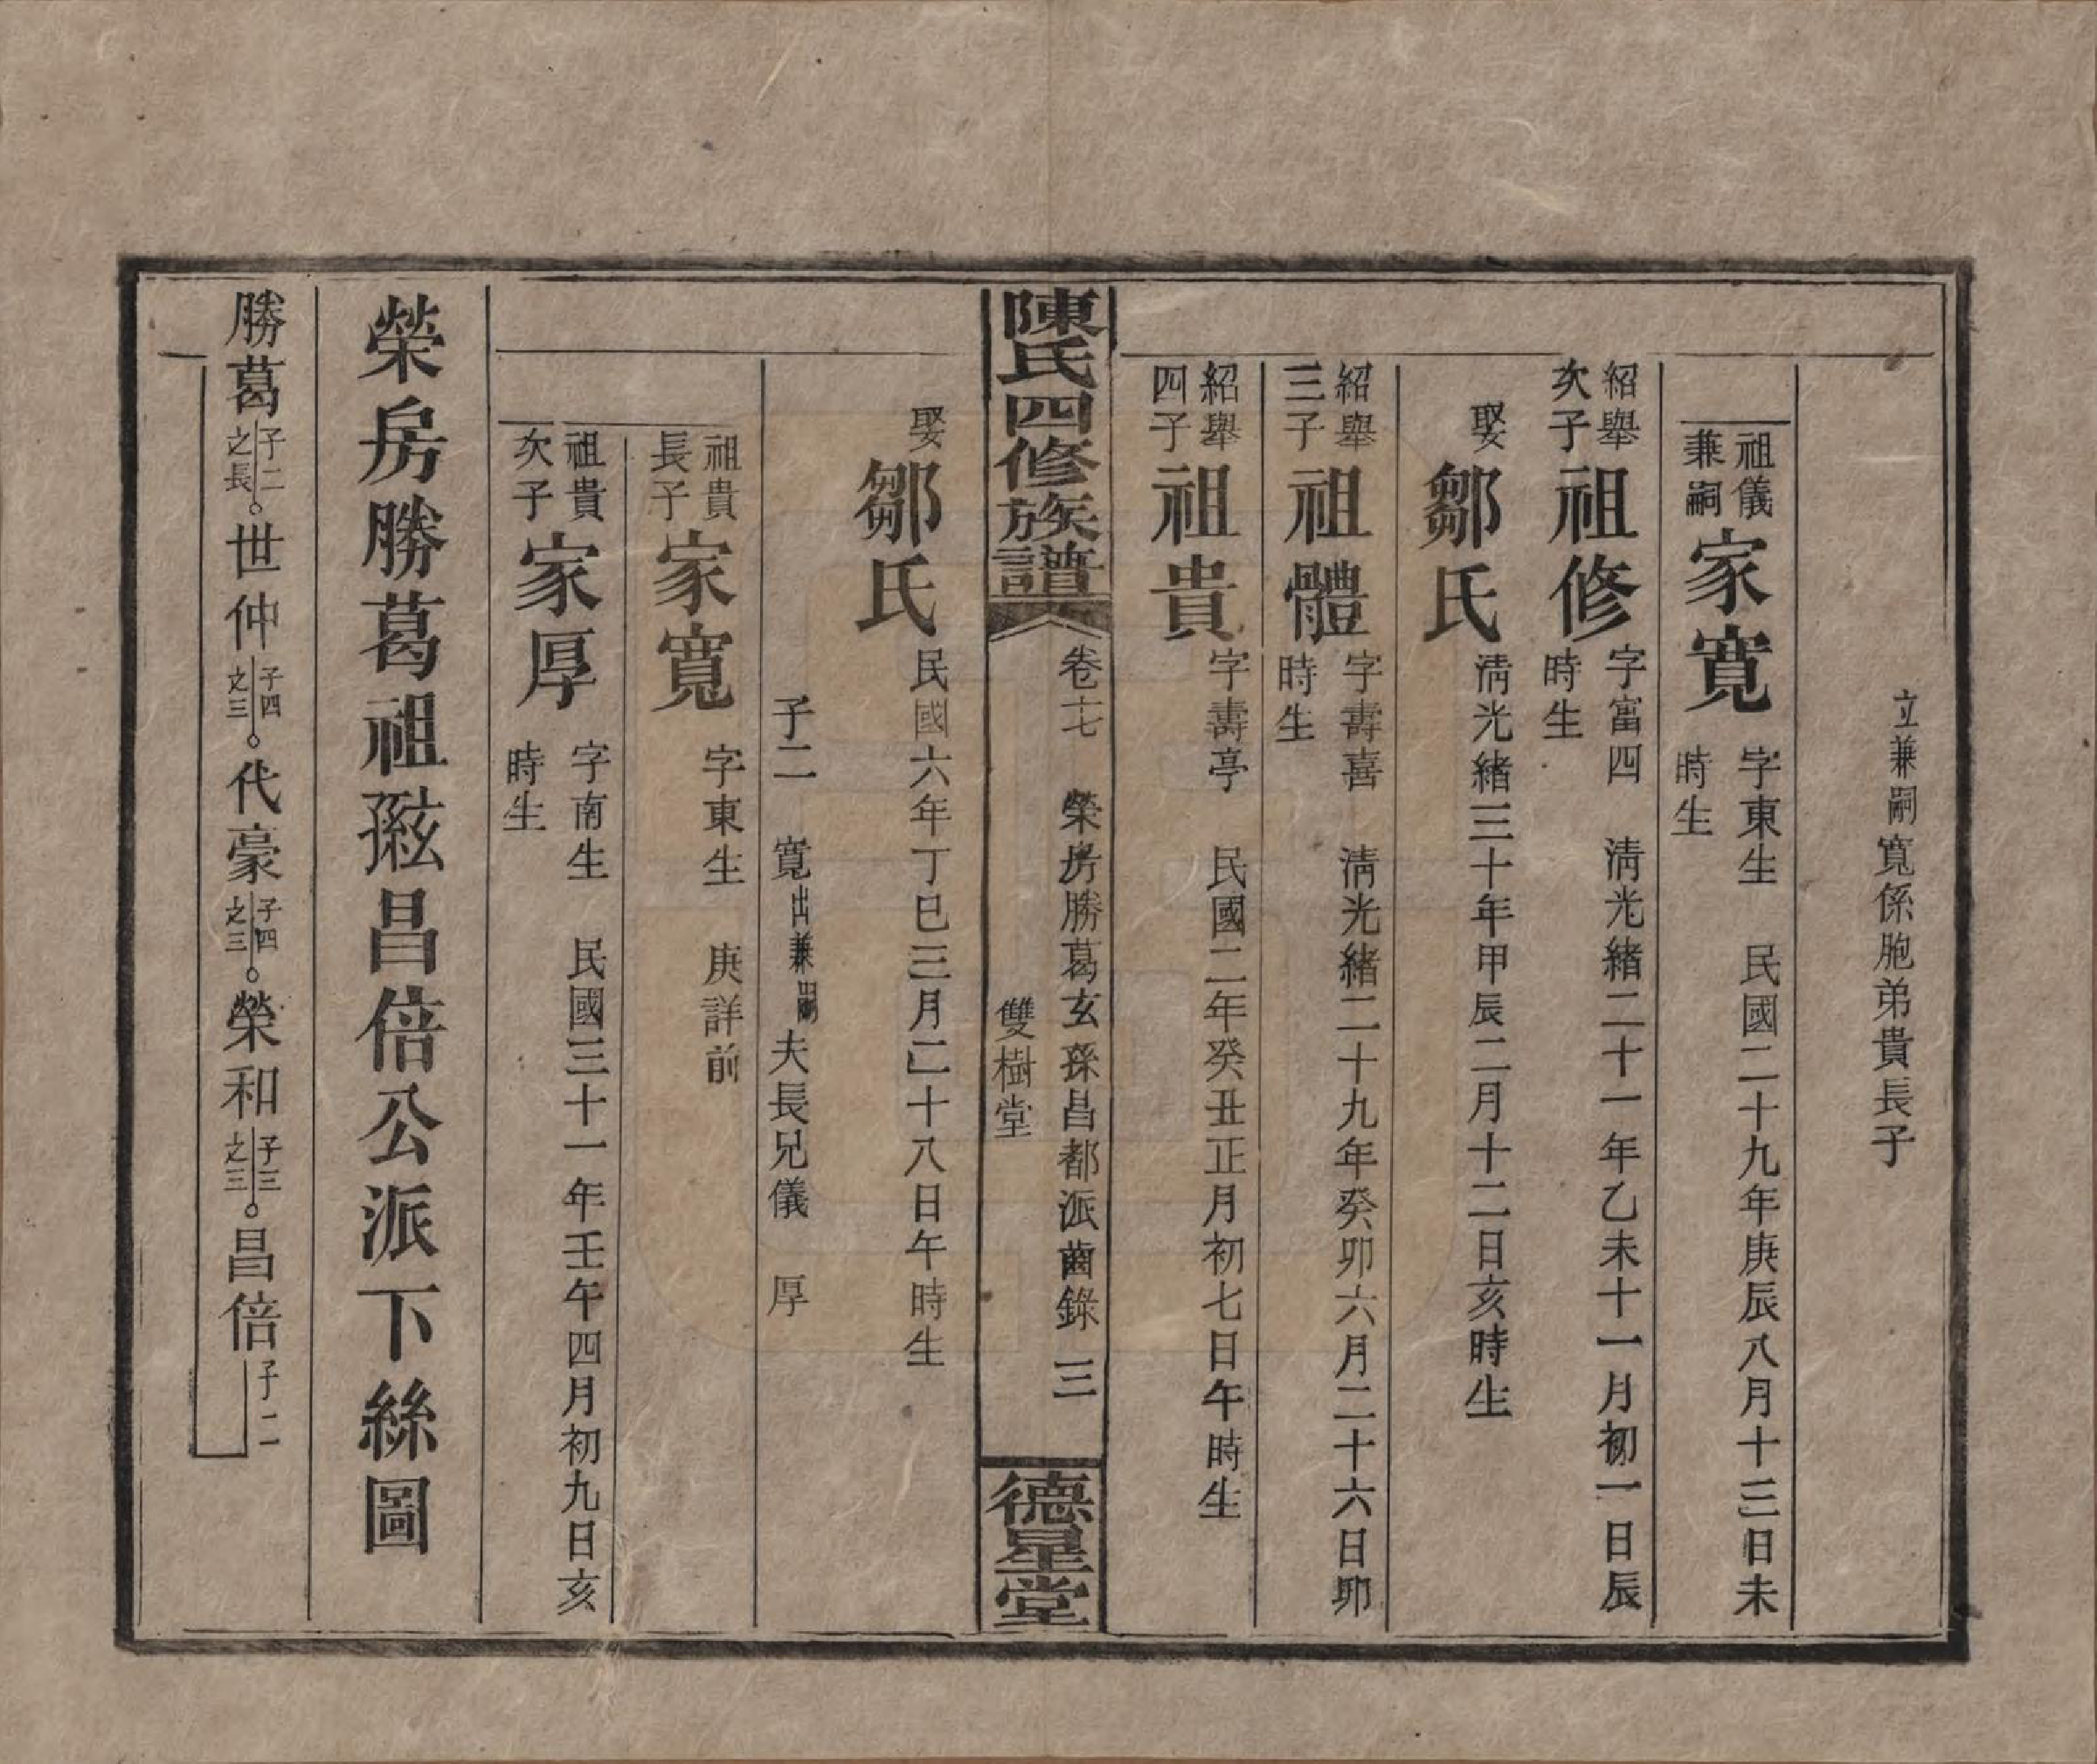 立兼嗣寬係胞弟貴長子
祖儀兼嗣
家寬
字東生　民國二十九年庚辰八月十三日未
時生
紹舉次子
祖修
字富四　清光緒二十一年乙未十一月初一日辰
時生
娶
鄒氏
清光緒三十年甲辰二月十二日亥時生
紹舉三子
祖體
字壽喜　清光緒二十九年癸卯六月二十六日卯
時生
紹舉四子
祖貴
字壽亭　民國二年癸丑正月初七日午時生
陳氏四修族譜
卷十七　榮房勝葛玄孫昌都派齒錄　三
雙樹堂
德星堂
娶
鄒氏
民國六年丁巳三月二十八日午時生
子二　寬出兼嗣夫長兄儀　厚
祖貴長子
家寬
字東生　庚詳前
祖貴次子
家厚
字南生　民國三十一年壬午四月初九日亥
時生
榮房勝葛祖玆昌倍公派下絲圖
勝葛子二之長世仲子四之三代豪子四之三榮和子三之三昌倍子二